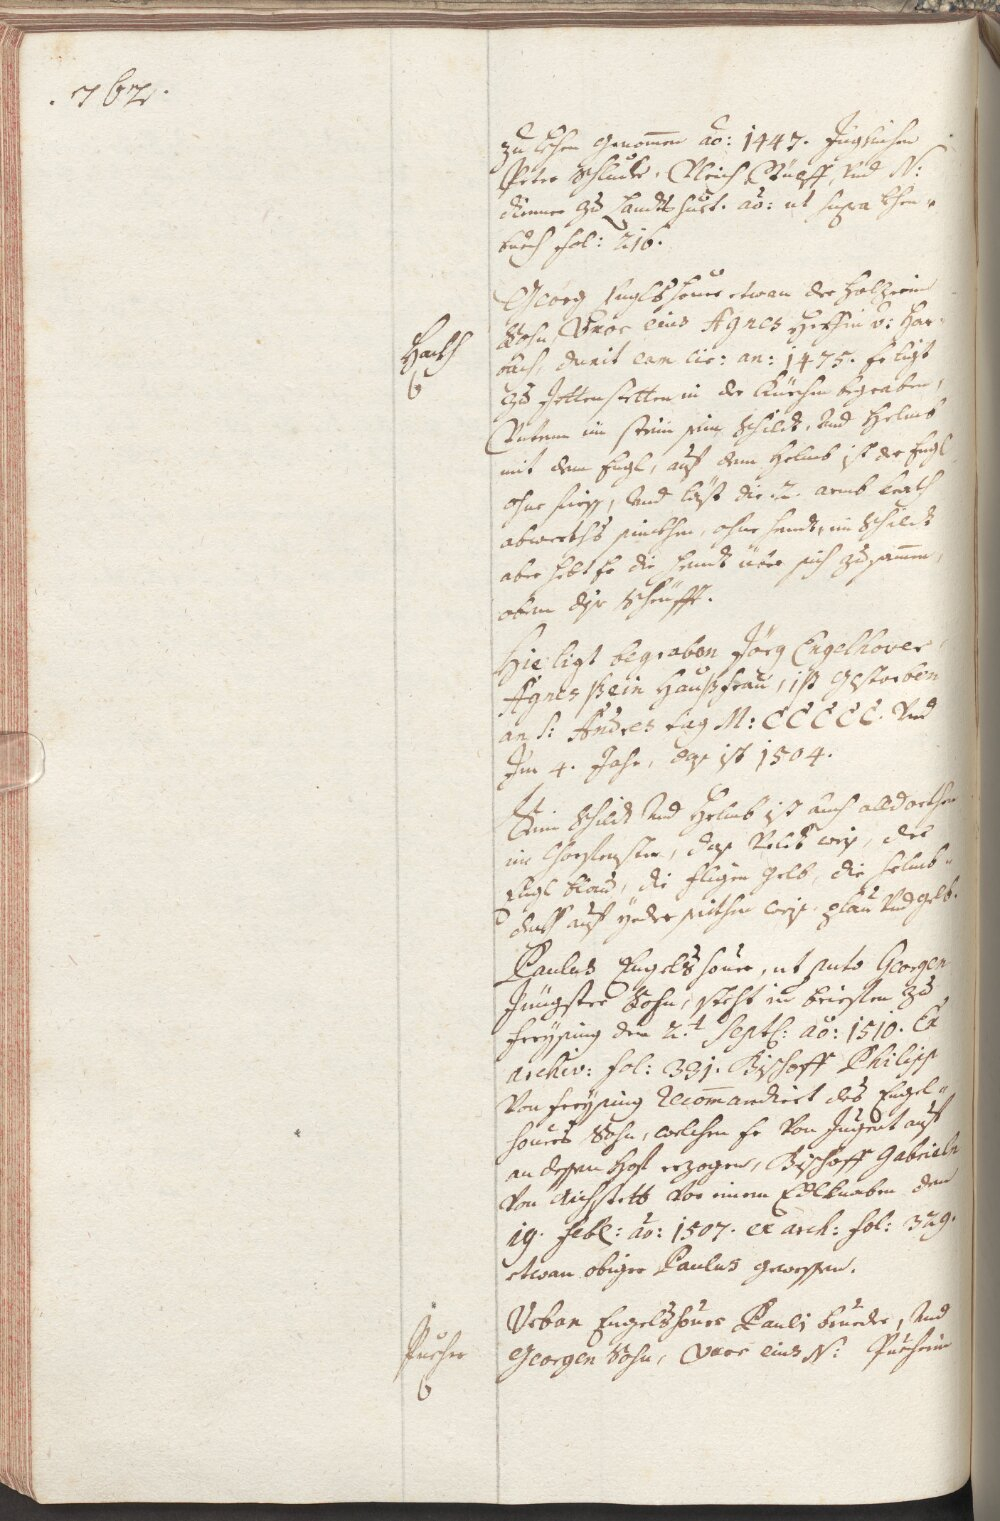 . 762 .
zu Lehen genommen aõ: 1447. Zeugsicher
Peter Schluder, Reich Wulff, und N:
Kenner zu Landtshuet. aõ: ut supra Lehen
buech fol: 216.
Georg Englshouer etwan der Holzerin
Sohn, Uxor eius Agnes Herssin v: Har-
Harsch
bach, duxit eam cir: an: 1475. Er ligt
zu Jettenstetten in der Kürchen begraben,
Unten im stein sein Schildt, und Helmb
mit dem Engl, auf dem Helmb ist der Engl
ohne fiess, und läst die 2. armb
abwerths sinckhen, ohne hendt, im Schildt
aber hebt Er die hendt über sich zusammen,
oben die Schrüfft.
Hie ligt begraben Jörg Engelhover,
Agnes sein Haußfrau, ist gestorben
an S: Andres tag M: CCCCC. und
Im 4. Jahr, das ist 1504.
Sein Schildt und Helmb ist auch alldorthen
im Chorfenster, das Veldt weis, der
Engl blau, die flügen gelb, die helmb-
deckh auf yeder seithen weis, plau und gelb.
Paulus Englshouer, ut puto Georgen
Jüngster Sohn, steht in briefen zu
Freysing den 2.t Septb: aõ: 1510. Ex
archiv: fol: 331. Bischoff Philipp
von Freysing recommandiert des Engel-
houers Sohn, welchen Er von Jugent auf
an dessen Hof erzogen, Bischoff Gabrieln
von Aichstett vor einem Edlknaben den
19. Feb: aõ: 1507. ex arch: fol: 329.
etwan obiger Paulus gewessen.
Urban Engelshouer Pauli brueder, und
Puecher
Georgen Sohn, Uxor eius N: